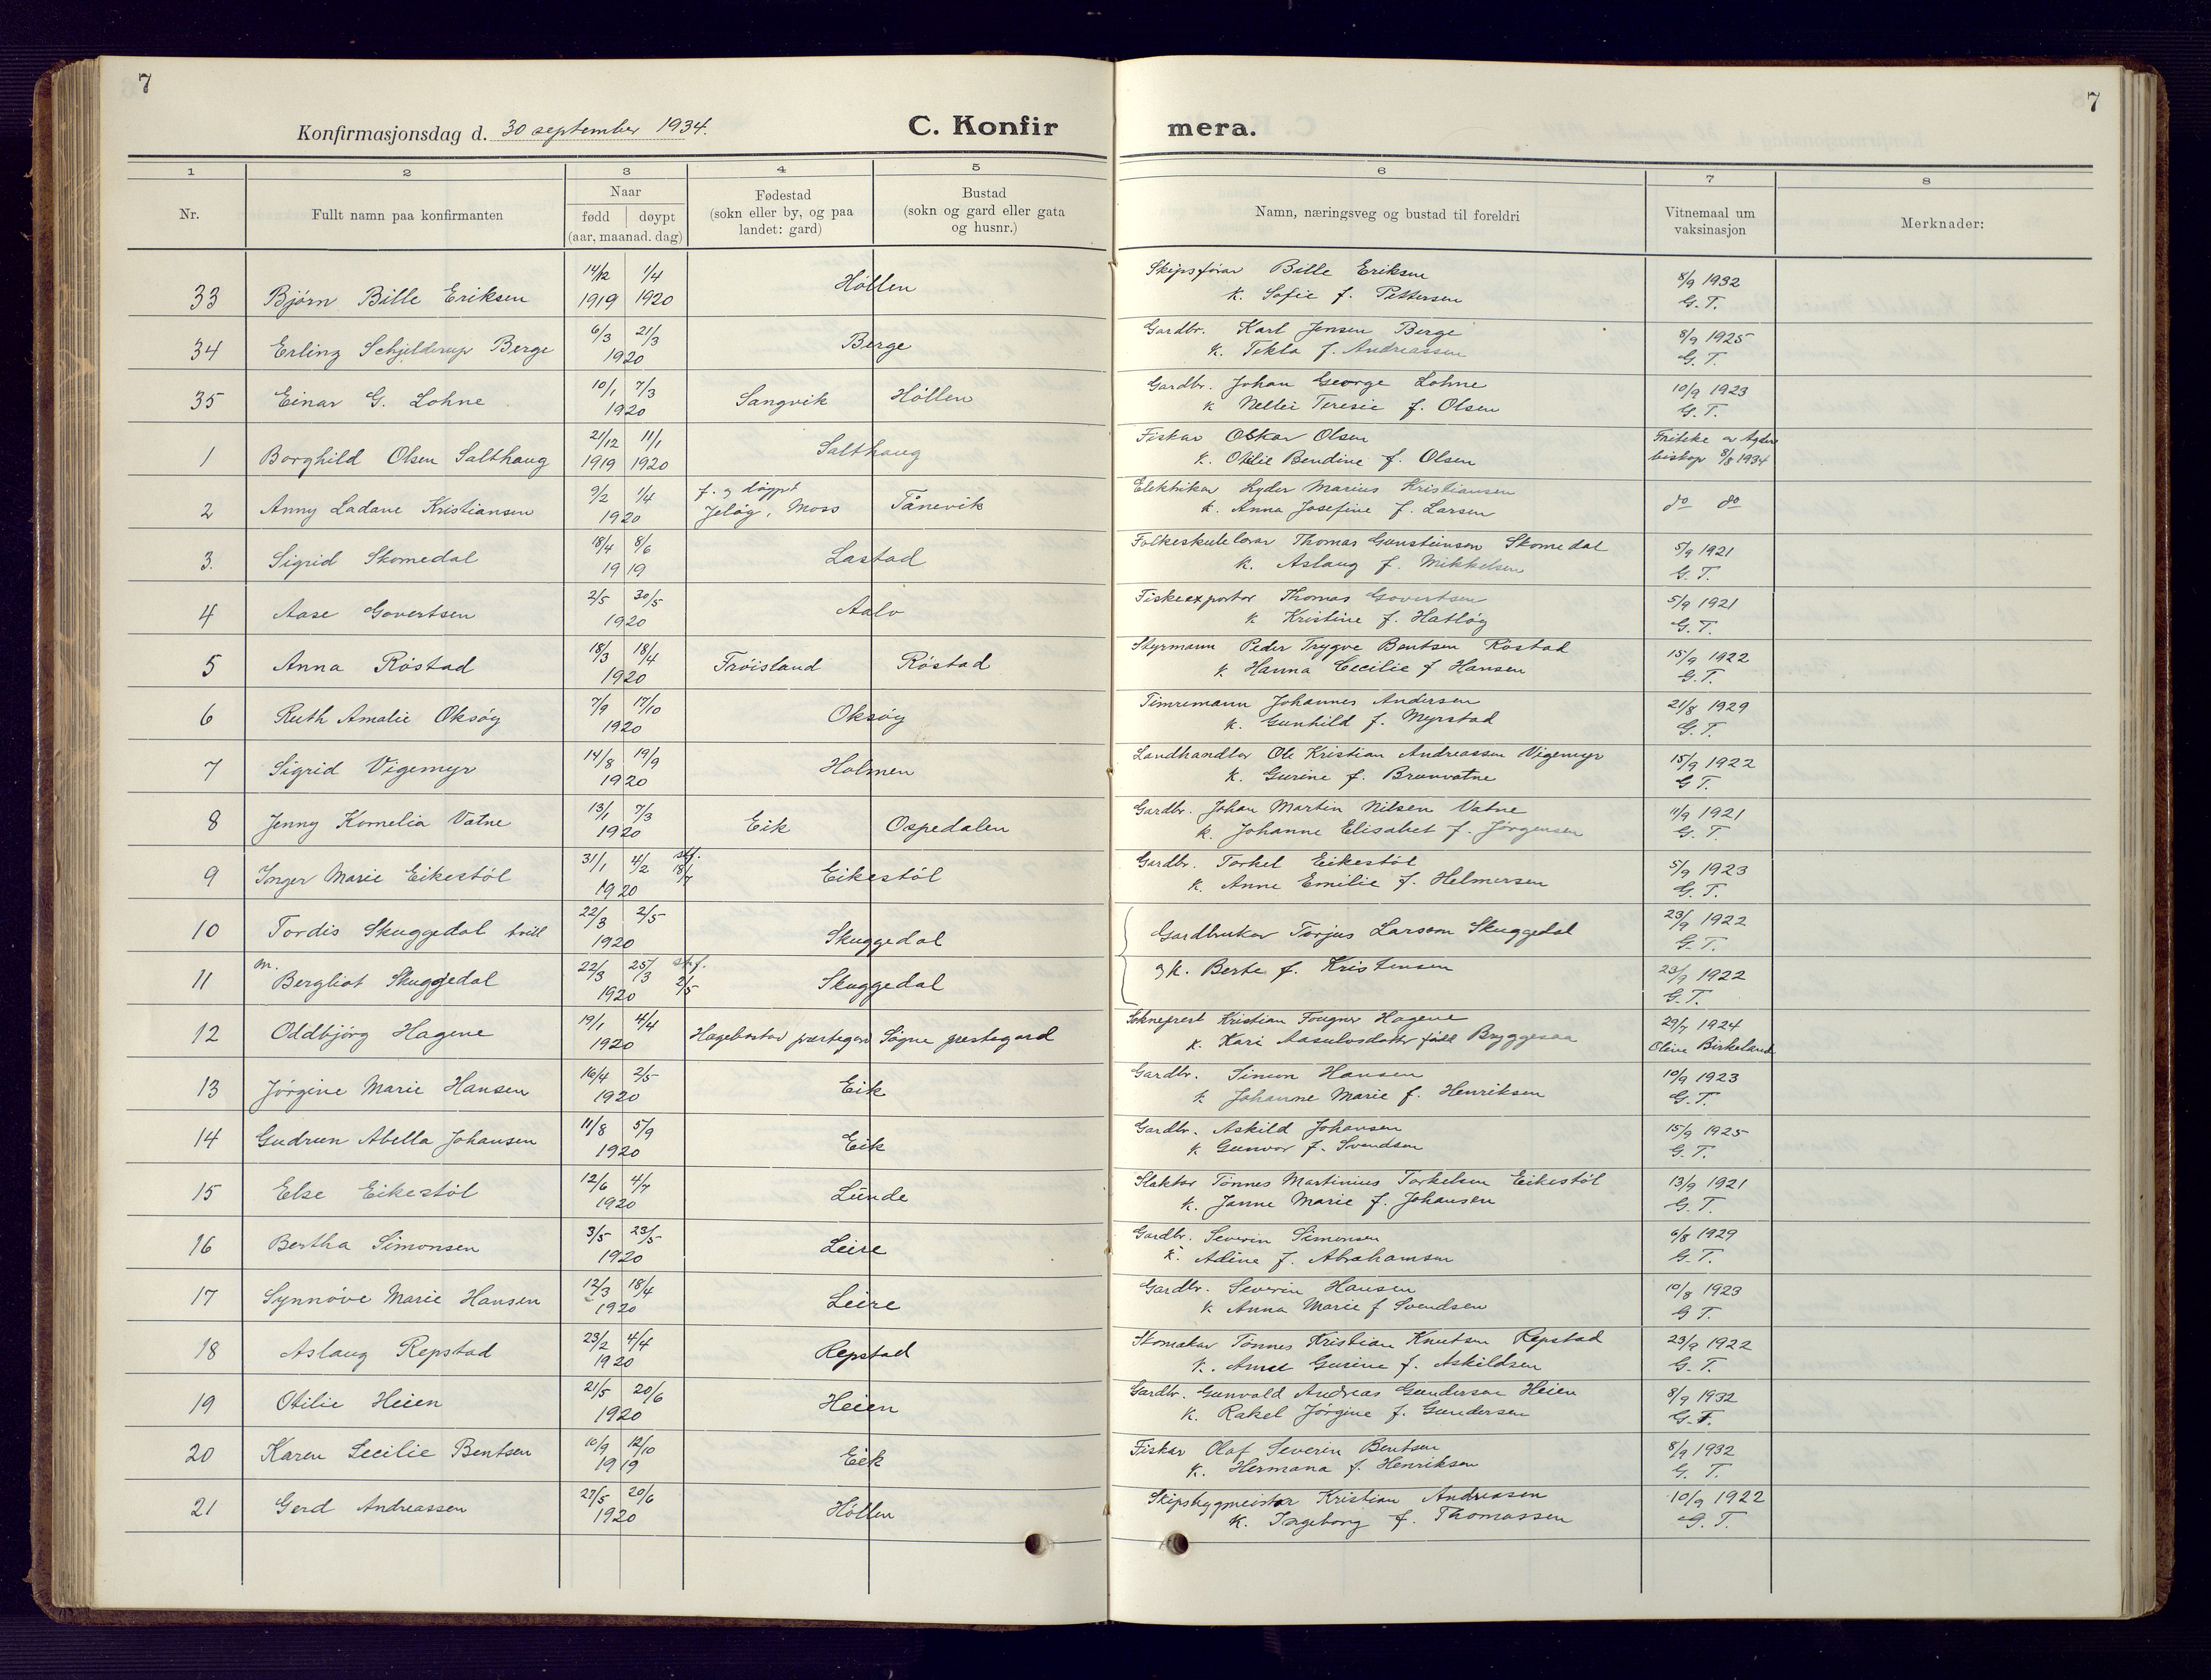 7
7
Konfirmasjonsdag d. 30 september 1934.
C. Konfir
mera.
1 2 3 4 5 6 7 8
Nr.
Fullt namn paa konfirmanten
Naar
fødd døypt
(aar, maanad, dag)
Fødestad
(sokn eller by, og paa
landet: gard)
Bustad
(sokn og gard eller gata
og husnr.)
Namn, næringsveg og bustad til foreldri
Vitnemaal um
vaksinasjon
Merknader:
14/12 1/4 Skipsførar Bille Eriksen 8/9 1932
33 Bjørn Bille Eriksen 1919 1920 Høllen K. Sofie f. Pettersen G. T.
6/3 21/3 Gardbr. Karl Jensen Berge 8/9 1925
34 Erling Schjelderup Berge 1920 Berge K. Tekla f. Andreassen G. T.
10/1 7/3 Gardbr. Johan George Lohne 10/9 1923
35 Einar G. Lohne 1920 Sangvik Høllen K Nellie Teresie f. Olsen G. T.
21/12 11/1 Fiskar Oskar Olsen
1 Borghild Olsen Salthaug 1919 1920 Salthaug K. Otilie Bendine f. Olsen biskop 8/8 1934
9/2 1/4 f. og døypt Elektrikar Lyder Marius Kristiansen
2 Anny Ladane Kristiansen 1920 Jeløy, Moss Tånevik K. Anna Josefine f. Larsen do do
18/4 8/6 Folkeskulelærar Thomas Gunsteinsen Skomedal 5/9 1921
3. Sigrid Skomedal 1919 Lastad K. Aslaug f. Mikkelsen G. T.
2/5 30/5 Fiskeexportør Thomas Govertsen 5/9 1921
4 Aase Govertsen 1920 Aalo K Kristine f. Hatløy G. T.
18/3 18/4 Styrmann Peder Trygve Bentsen Røstad 15/9 1922
5 Anna Røstad 1920 Frøisland Røstad K Hanna Cecilie f Hansen G. T.
7/9 17/10 Timremann Johannes Andersen 21/8 1929
6 Ruth Amalie Oksøy 1920 Oksøy K. Gunhild f. Myrstad G. T.
14/8 19/9 Landhandlar Ole Kristian Andreassen Vigemyr 15/9 1922
7 Sigrid Vigemyr 1920 Holmen K. Gurine f. Brunvatne G T.
13/1 7/3 Gardbr. Johan Martin Nilsen Vatne 11/9 1921
8 Jenny Kornelia Vatne 1920 Eik Ospedalen K. Johanne Elisabet f. Jørgensen G. T.
31/1 4/2 stf. 18/7 Gardbr. Torkel Eikestøl 5/9 1923
9 Inger Marie Eikestøl 1920 Eikestøl K. Anne Emilie f. Helmersen G. T.
22/3 2/5 23/9 1922
10 Tordis Skuggedal tvill 1920 Skuggedal Gardbrukar Torjus Larsen Skuggedal G. T.
m. 22/3 25/3 stf. 2/5 23/9 1922
11 Bergliot Skuggedal 1920 Skuggedal og K. Berte f. Kristensen G. T.
19/1 4/4 Sokneprest Kristian Fougner Hagene 29/7 1924
12 Oddbjørg Hagene 1920 Søgne prestegard K. Kari Aasulvsdatter født Bryggesaa Olive Birkeland
16/4 2/5 Gardbr. Simon Hansen 10/9 1923
13 Jørgine Marie Hansen 1920 Eik K Johanne Marie f. Henriksen G. T.
11/8 5/9 Gardbr. Askild Johansen 15/9 1925
14 Gudrun Abella Johansen 1920 Eik K Gunvor f. Svendsen G. T.
12/6 4/7 Slaktar Tønnes Martinius Torkelsen Eikestøl 13/9 1921
15 Else Eikestøl 1920 Lunde K. Janne Marie f. Johansen G. T.
3/5 23/5 Gardbr. Severin Simonsen 6/8 1929
16 Bertha Simonsen 1920 Leire K. Adine f. Abrahamsen G. T.
12/3 18/4 Gardbr. Severin Hansen 10/8 1923
17 Synnøve Marie Hansen 1920 Leire K Anna Marie f Svendsen G T.
23/2 4/4 Skomakar Tønnes Kristian Knutsen Repstad 23/9 1922
18 Aslaug Repstad 1920 Repstad K. Gurine f. Askildsen G. T.
21/5 20/6 Gardbr. Gunvald Andreas Gundersen Heien 8/9 1932
19 Otilie Heien 1920 Heien K. Rakel Jørgine f. Gundersen G. T.
10/9 12/10 Fiskar Olaf Severin Bentsen 8/9 1932
20 Karen Secilie Bentsen 1919 Eik K. Hermana f. Henriksen G. T.
27/5 20/6 Skipsbygmeister Kristian Andreasen 10/9 1922
21 Gerd Andreassen 1920 Høllen K. Ingeborg f. Thomassen G. T.